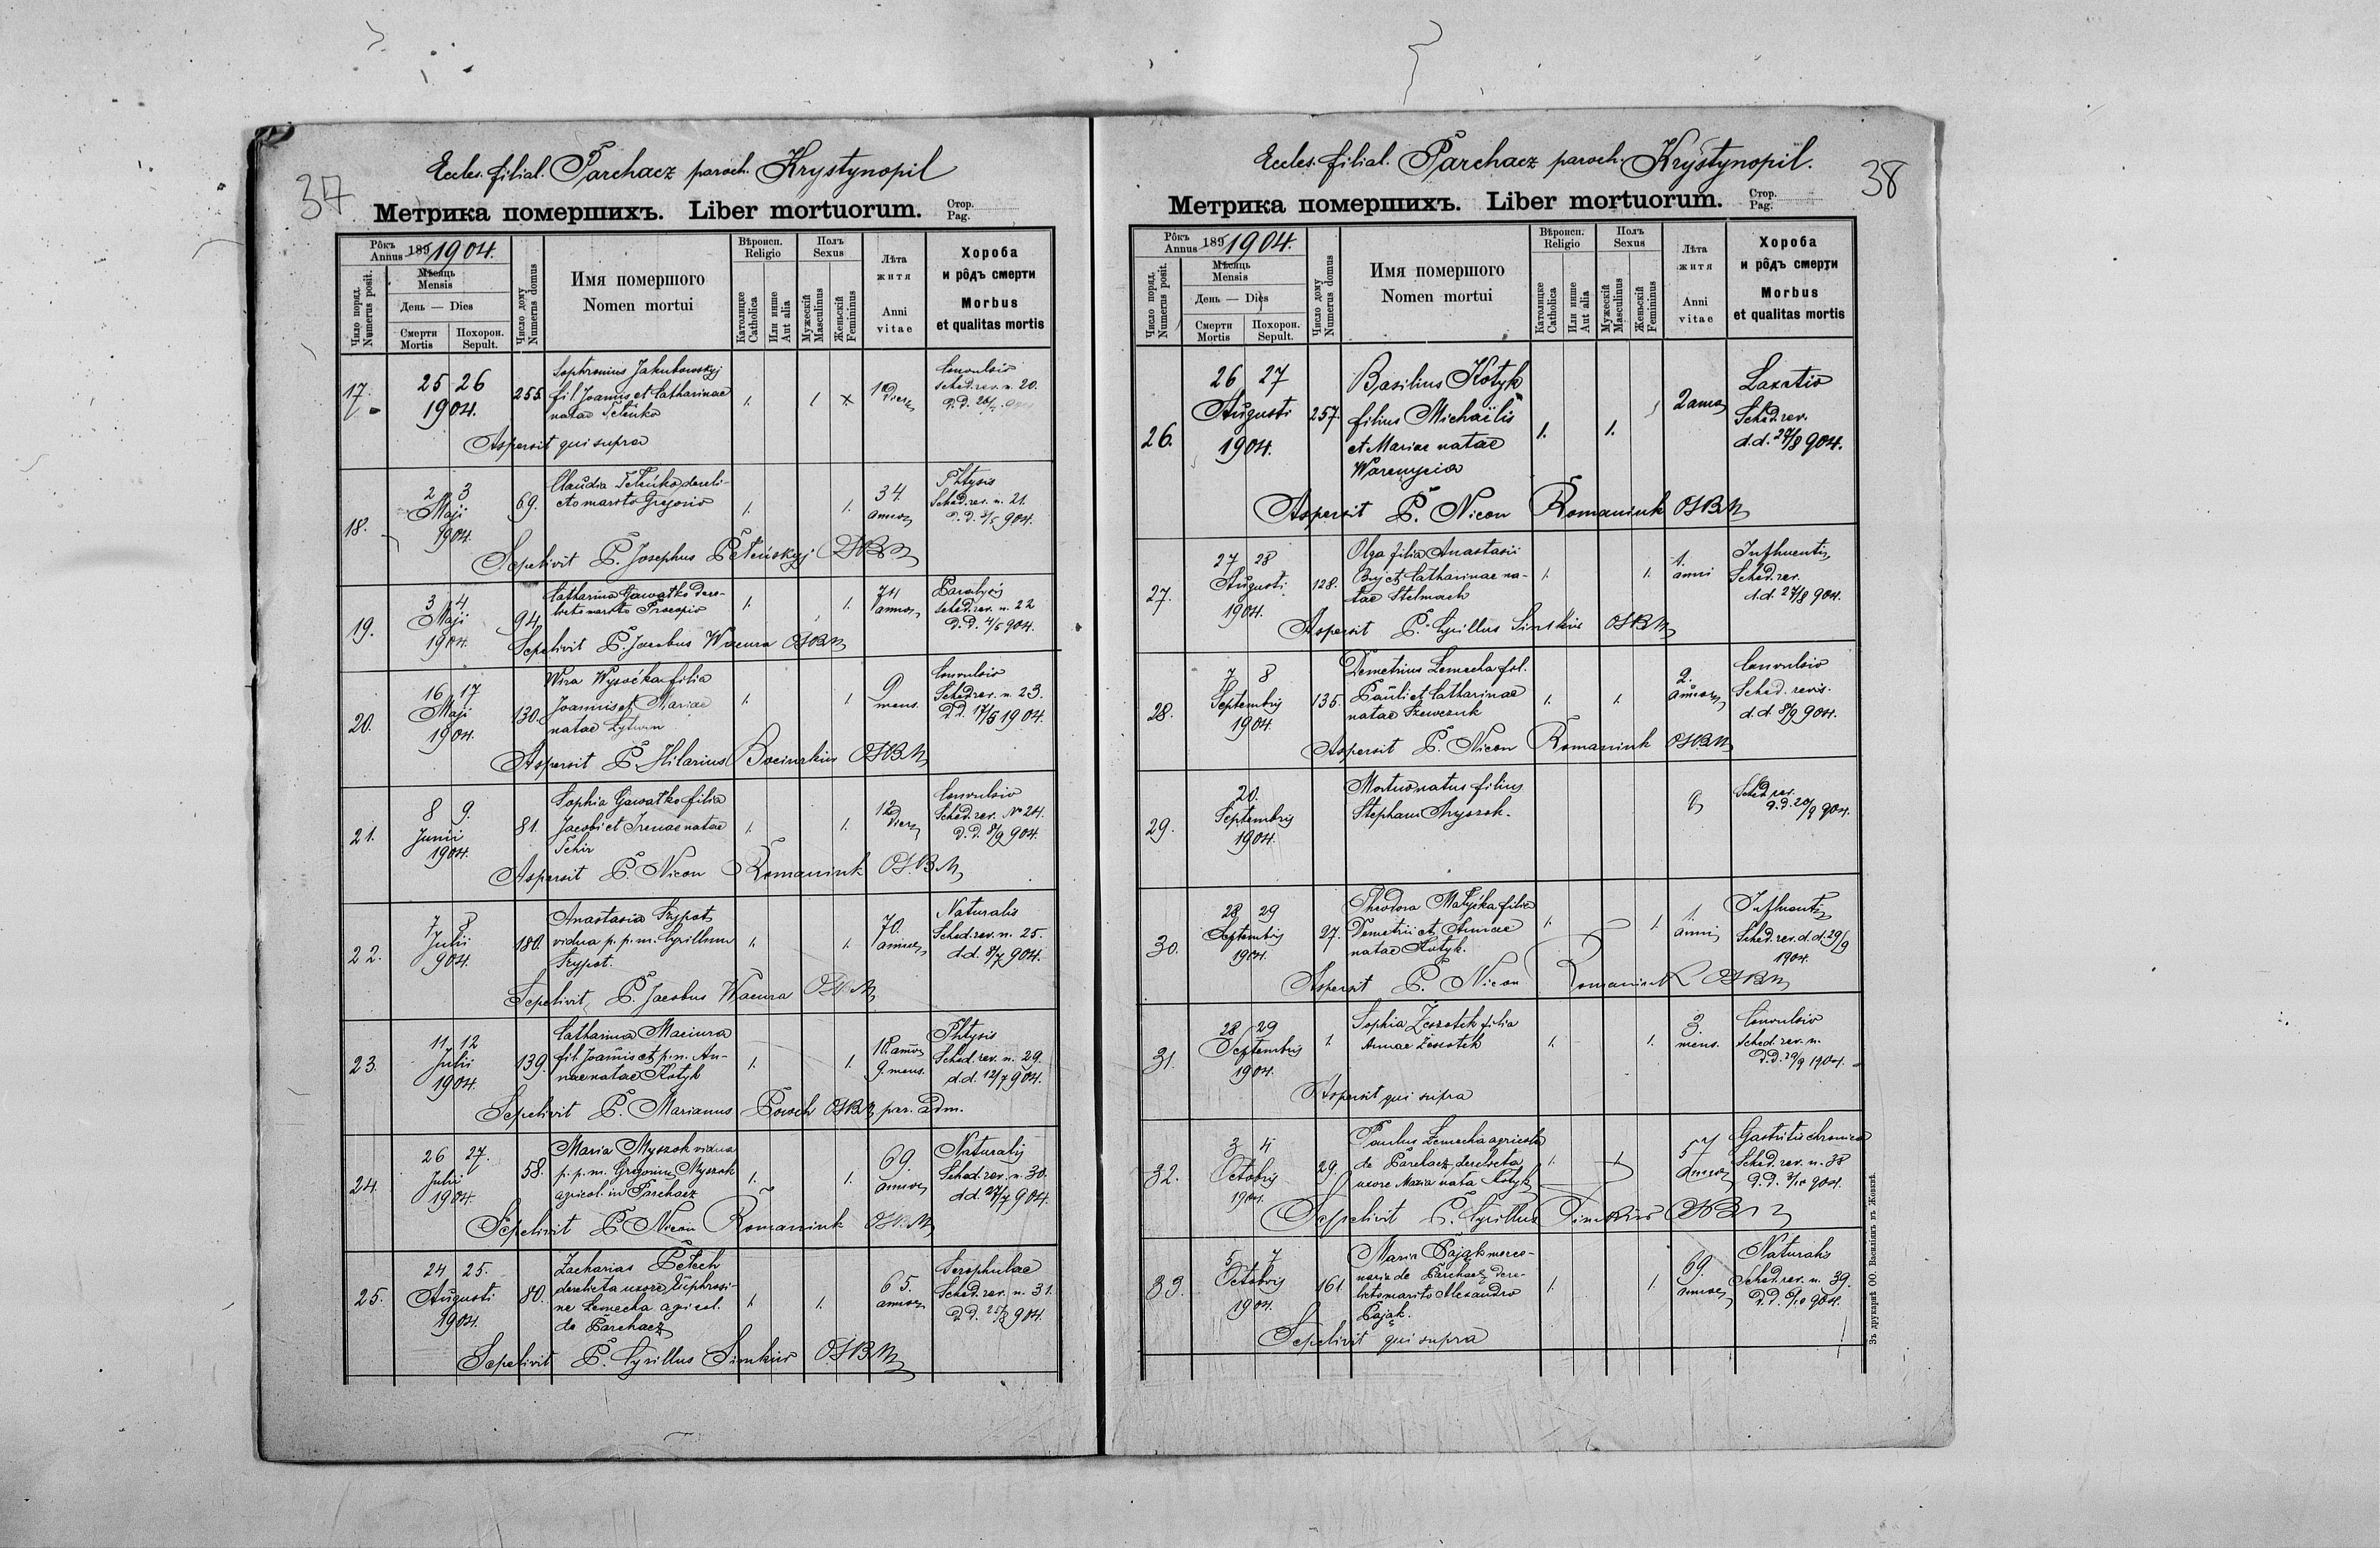 37
Eccles. filial. Parchacz paroch. Krystynopil
Метрика помершихъ. Liber mortuorum.
Стор.
Pag.
Рôкъ
Annus 189 1904.
Мѣсяць
Mensis
День — Dies
Смерти
Mortis
Похорон.
Sepult.
Число поряд.
Numerus posit.
Число дому
Numerus domus
Имя помершого
Nomen mortui
Вѣроисп.
Religio
Католицке
Catholica
Или инше
Aut alia
Полъ
Sexus
Мужескій
Masculinus
Женьскій
Femininus
Лѣта
житя
Anni
vitae
Хороба
и рôдъ смерти
Morbus
et qualitas mortis
17.
25 26
1904.
255
Sophronius Jakubowskyj
fil. Joannis et Catharinae
natae
Convulsio
Sched. rev. n. 20.
Aspersit qui supra
18.
2 3
Maji
1904.
69.
Claudia dereli-
cto marito Gregorio
1.
1.
34
annor.
Phtysis
Sched. rev. n. 21.
d. d. 3/5 904.
Sepelivit P. Josephus OSBM
19.
3 4
Maji
1904.
94.
Catharina Gawatko dere-
licto marito Procopio
1.
1.
74
annor.
Sched. rev. n. 22
d. d. 4/5 904.
Sepelivit P. Jacobus Wacura OSBM
20.
16 17
Maji
1904.
130.
Wira Wysoćka filia
Joannis et Mariae
natae Lytwyn
1.
1
9
mens.
Convulsio
Sched. rev. n. 23.
d. d. 17/5 1904.
Aspersit P. Hilarius OSBM
21.
8 9.
Junii
1904.
81.
Sophia Gawatko filia
Jacobi et Irenae natae
Tchir
1.
1.
12
dier.
Convulsio
Sched. rev. No 24.
d. d. 8/9 904.
Aspersit P. Nicon Romaniuk OSBM
22.
7 8
Julii
904.
180.
Anastasia Szypot
vidua p. p. m. Cyrillum
Szypot.
1.
1.
70.
annor.
Naturalis
Sched. rev. n. 25.
d. d. 8/7 904.
Sepelivit P. Jacobus Wacura OSBM
23.
11. 12
Julii
1904.
139.
Catharina Maciura
fil. Joannis et p. m. An-
nae natae Kotyk
1.
1.
18 annor.
9. mens.
Phtysis
Sched. rev. n. 29.
d. d. 12/7 904.
Sepelivit P. Marianus Powch OSBM par. adm.
24.
26 27.
Julii
1904.
58.
Maria Myszok vidua
p. p. m. Gregorium Myszok
agricol. in Parchacz
1.
1.
69.
annor.
Naturalis
Sched. rev. n. 30.
d. d. 27/7 904.
Sepelivit P. Nicon Romaniuk OSBM
25.
24 25.
Augusti
1904.
80.
Zacharias Petech
derelicta uxore Euphrosi-
ne Lemecha agricol.
de Parchacz
1.
1.
65.
annor.
Scrophulae
Sched. rev. n. 31.
d. d. 25/8 904.
Sepelivit P. Cyrillus Simkiw OSBM
38
Eccles. filial. Parchacz paroch. Krystynopil.
Метрика помершихъ. Liber mortuorum.
Стор.
Pag.
Рôкъ
Annus 189 1904.
Мѣсяць
Mensis
День — Dies
Смерти
Mortis
Похорон.
Sepult.
Число поряд.
Numerus posit.
Число дому
Numerus domus
Имя помершого
Nomen mortui
Вѣроисп.
Religio
Католицке
Catholica
Или инше
Aut alia
Полъ
Sexus
Мужескій
Masculinus
Женьскій
Femininus
Лѣта
житя
Anni
vitae
Хороба
и рôдъ смерти
Morbus
et qualitas mortis
26.
26 27
Augusti
1904.
257.
Basilius Kotyk
filius Michaëlis
et Mariae natae
1.
1.
Laxatio
Sched. rev.
d. d. 27/8 904.
Aspersit P. Nicon Romaniuk OSBM
27.
27 28
Augusti
1904.
128.
Olga filia Anastasii
Buj et Catharinae na-
tae Stelmach
1.
1.
1.
anni
Influentia
Sched. rev.
d. d. 27/8 904.
Aspersit P. Cyrillus Simkiw OSBM
28.
7 8
Septembris
1904.
135.
Demetrius Lemecha fil.
Pauli et Catharinae
natae Szewczuk
1.
1.
2.
annor.
Convulsio
Sched. revis.
d. d. 8/9 904.
Aspersit P. Nicon Romaniuk OSBM
29.
20.
Septembris
1904.
Mortuonatus filius
Stephani
Sched. rev.
d. d. 20/9 904.
30.
28 29
Septembris
1904.
27.
Theodora filia
Demetrii et Annae
natae Kotyk.
1.
1.
1.
anni
Influentia
Sched. rev. d. d. 29/9
1904.
Aspersit P. Nicon Romaniuk OSBM
31.
28 29
Septembris
1904.
1.
Sophia filia
Annae
1.
1.
3.
mens.
Convulsio
Sched. rev. n.
d. d. 29/9 1904.
Aspersit qui supra
32.
3 4
Octobris
1904.
29.
Paulus Lemecha agricola
de Parchacz, derelicta
uxore Maria nata Kotyk
1.
1
57
annor.
Gastritis chronica
Sched. rev. n. 38
Sepelivit P. Cyrillus Simkiw OSBM
33.
5 7
Octobris
1904.
161.
Maria Pająk merce-
naria de Parchacz, dere-
licto marito Alexandro
Pająk.
1.
1
69.
annor.
Naturalis
Sched. rev. n. 39.
d. d. 6/10 904.
Sepelivit qui supra
Зъ друкарнѣ ОО. Василіянъ въ Жовквѣ.